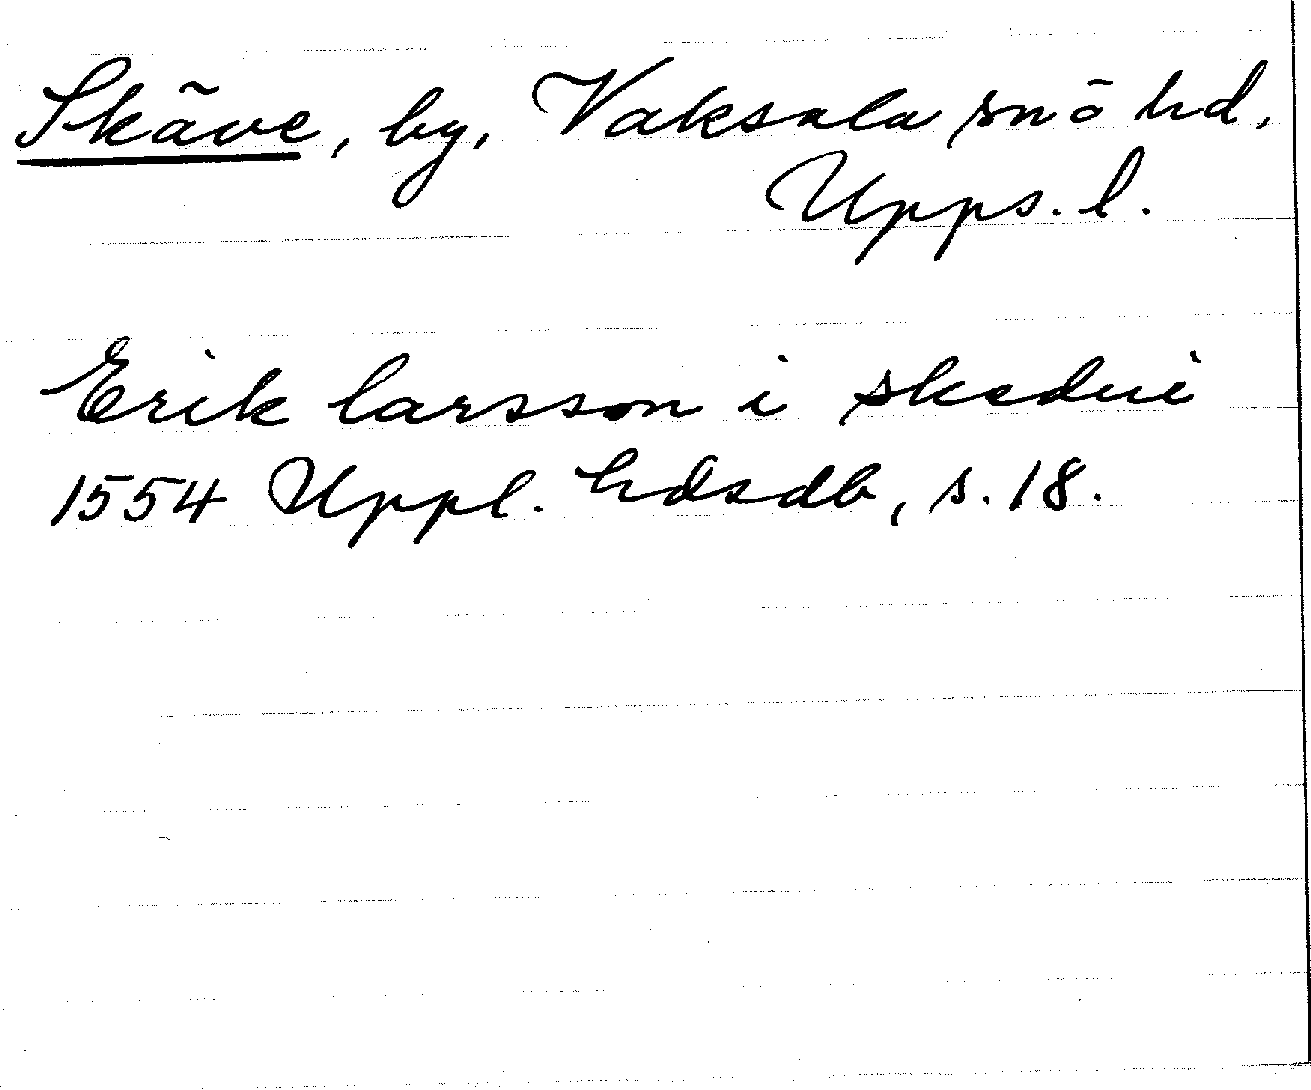 Skäve, by, Vaksala sn o hd,
Upps. l.
Erik larsson i skedui
1554 Uppl. hdsdb, s. 18.